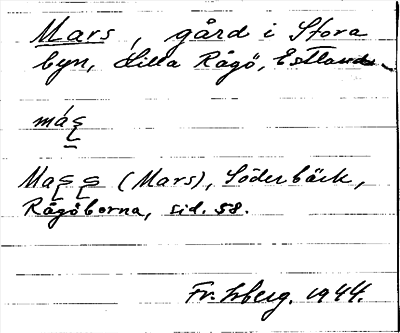 Mars, gård i Stora
byn, Lilla Rågö, Estland
Ma (Mars), Söderbäck,
Rågöborna, sid. 58.
1944.